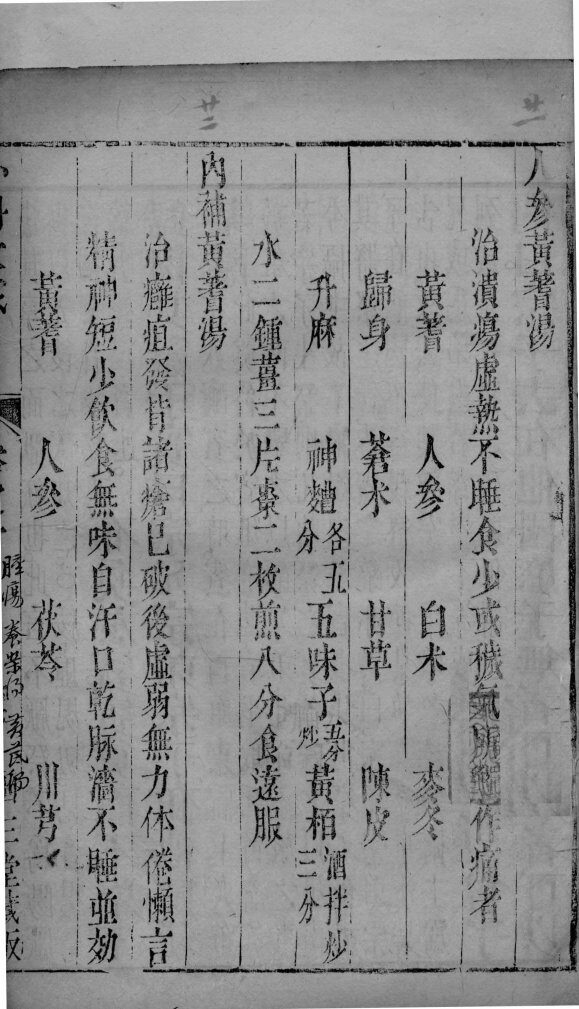 廿一
廿二
人參黃蓍湯
治潰瘍虛熱不睡食少或穢氣所觸作痛者
黃蓍 人參 白朮 麥冬
歸身 蒼朮 甘草 陳皮
升麻 神麯各五分 五味子五分炒 黃栢酒拌炒三分
水二鍾薑三片棗二枚煎八分食遠服
內補黃蓍湯
治癰疽發背諸瘡已破後虛弱無力体倦懶言
精神短少飲食無味自汗口乾脉濇不睡並効
黃蓍 人參 茯苓 川芎